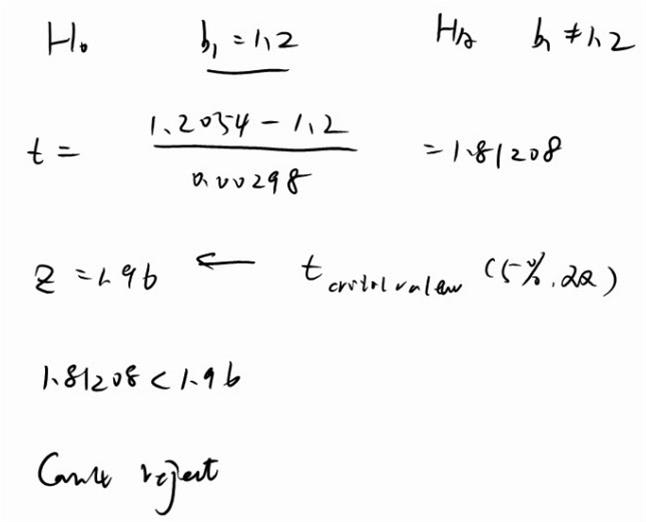 H₀ b₁ = 1.2 HA b₁ ≠ 1.2
t = (1.2054 - 1.2) / 0.00298 = 1.81208
Z = 1.96 ← t critical value (5%, ∞)
1.81208 < 1.96
reject